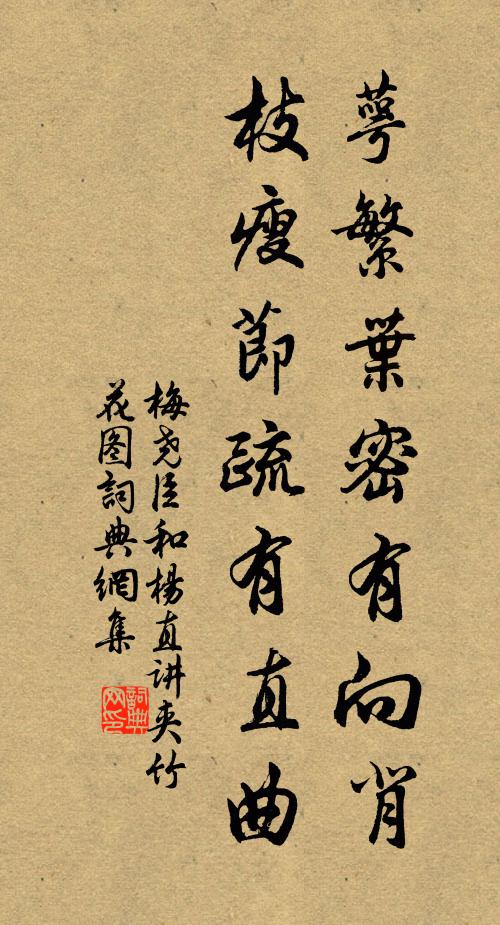 萼繁葉密有向背
枝瘦節疏有直曲
梅尧臣和楊直讲夹竹
花图詞典網集
詞典网印